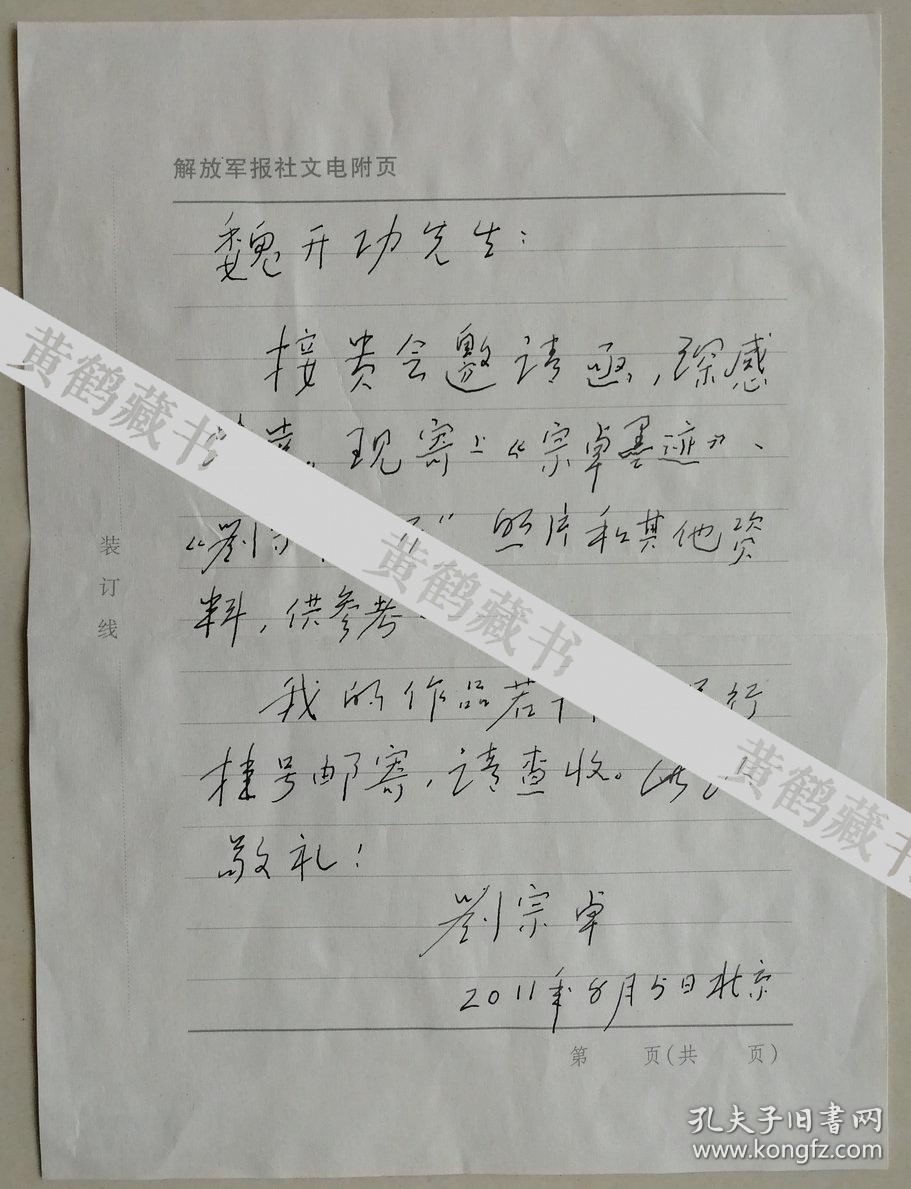 解放军报社文电附页
魏开功先生：
接贵会邀请函，深感
。现寄上《宗卓墨迹》、
《劉 照片和其他资
料，供参考
我的作品若 行
挂号邮寄，请查收。此
敬礼！
劉宗卓
2011年8月5日北京
装订线
第 页(共 页)
黄鹤藏书
黄鹤藏书
黄鹤藏书
孔夫子旧書网
www.kongfz.com